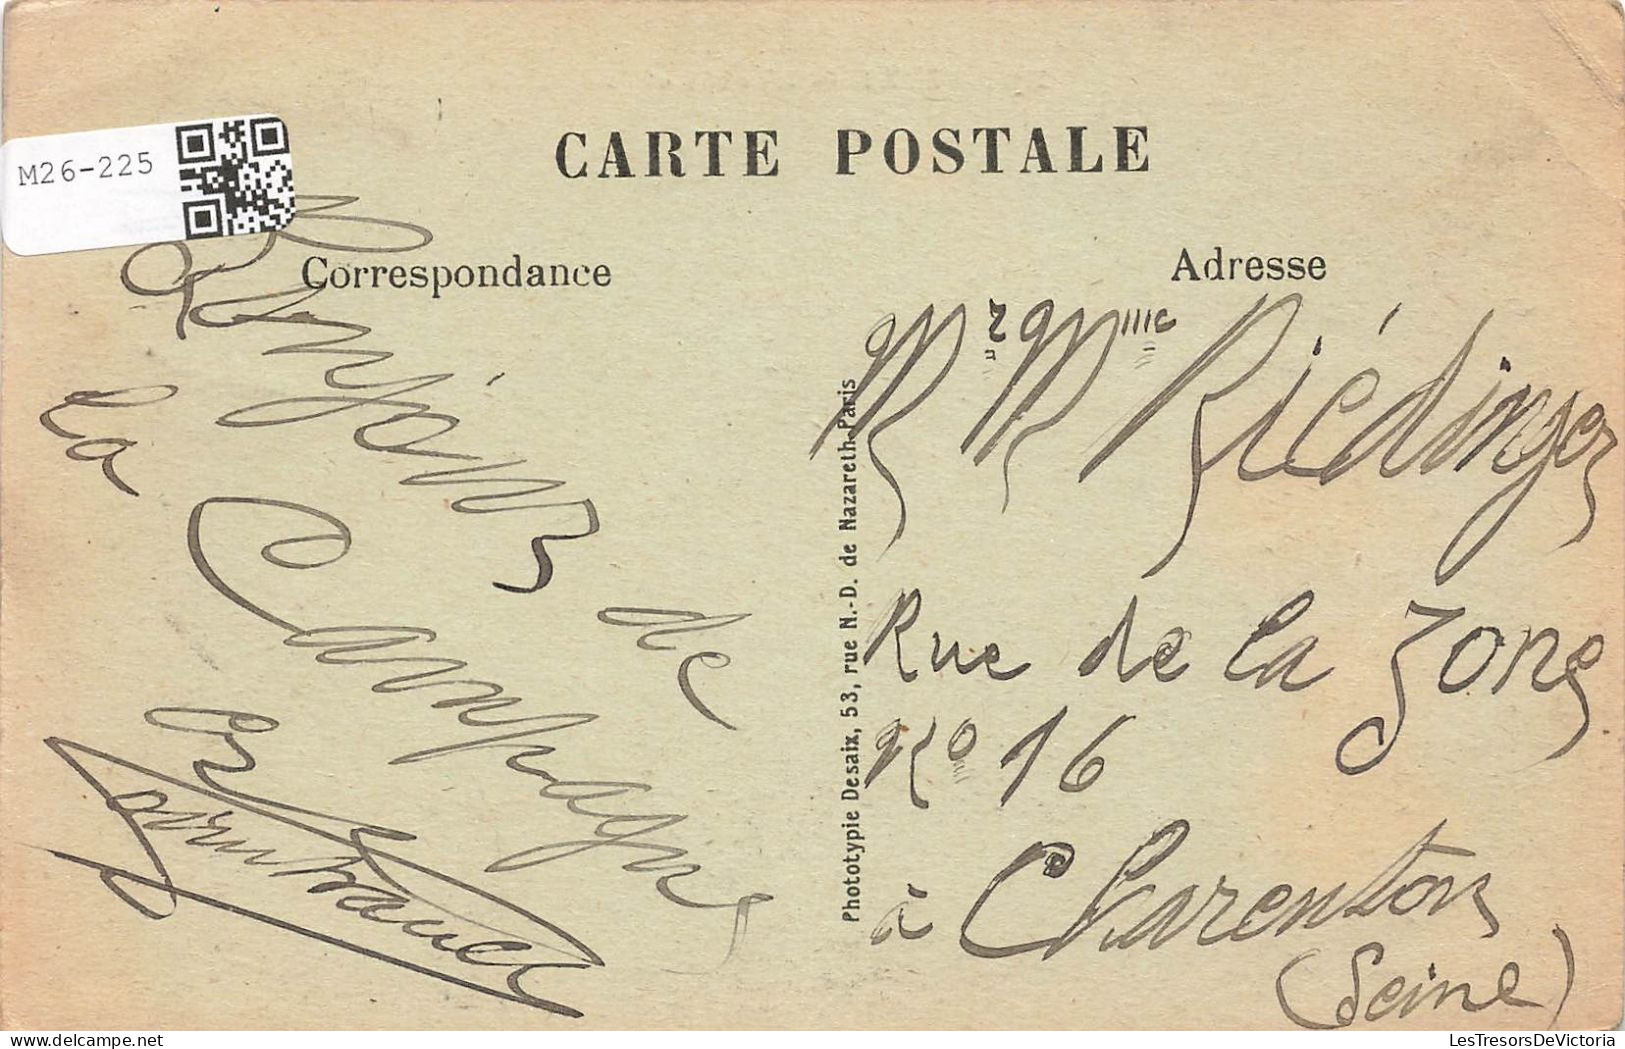 M26-225
CARTE POSTALE
Correspondance
Bonjour de
la Campagne
Adresse
Mr Mme Riédinger
Rue de la
No 16
à Charenton
(Seine)
Phototypie Desaix, 53, rue N.-D. de Nazareth-Paris
LesTresorsDeVictoria